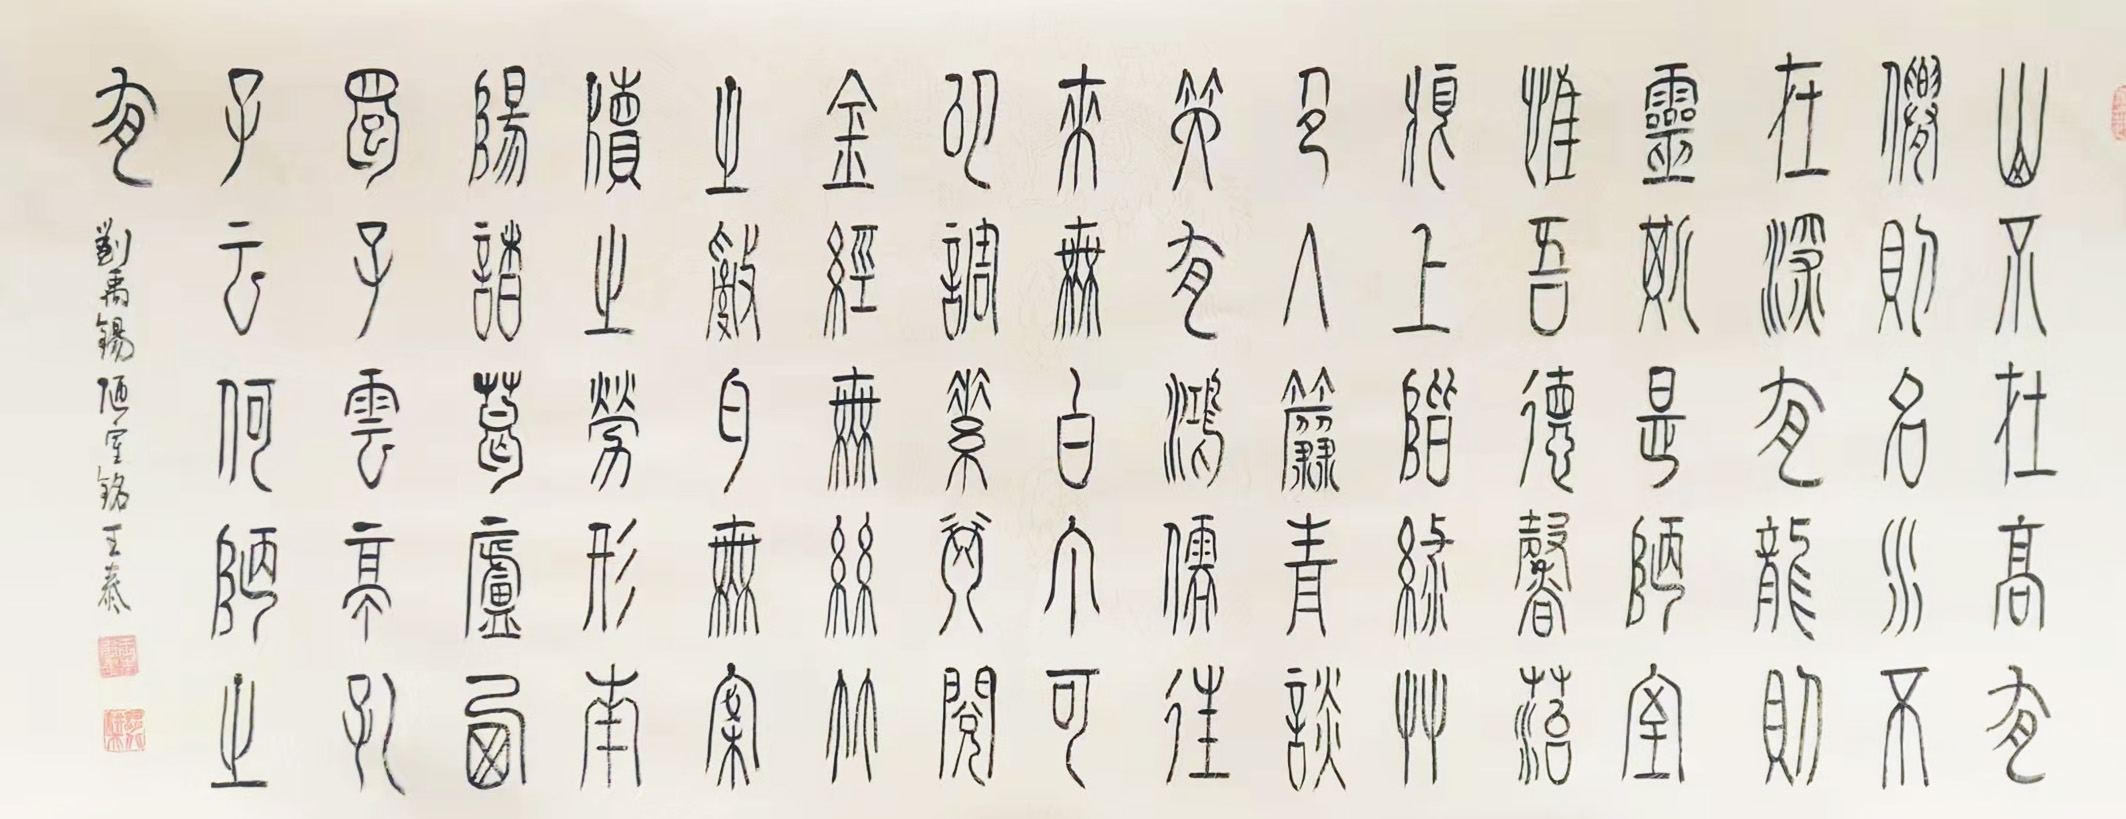 山不在高有
僊則名水不
在深有龍則
靈斯是陋室
惟吾德馨菭
痕上階綠艸
色入簾青談
笑有鴻儒往
來無白丁可
以調素琴閱
金經無絲竹
之亂耳無案
牘之勞形南
陽諸葛廬西
蜀子雲亭孔
子云何陋之
有
劉禹錫陋室銘王泰